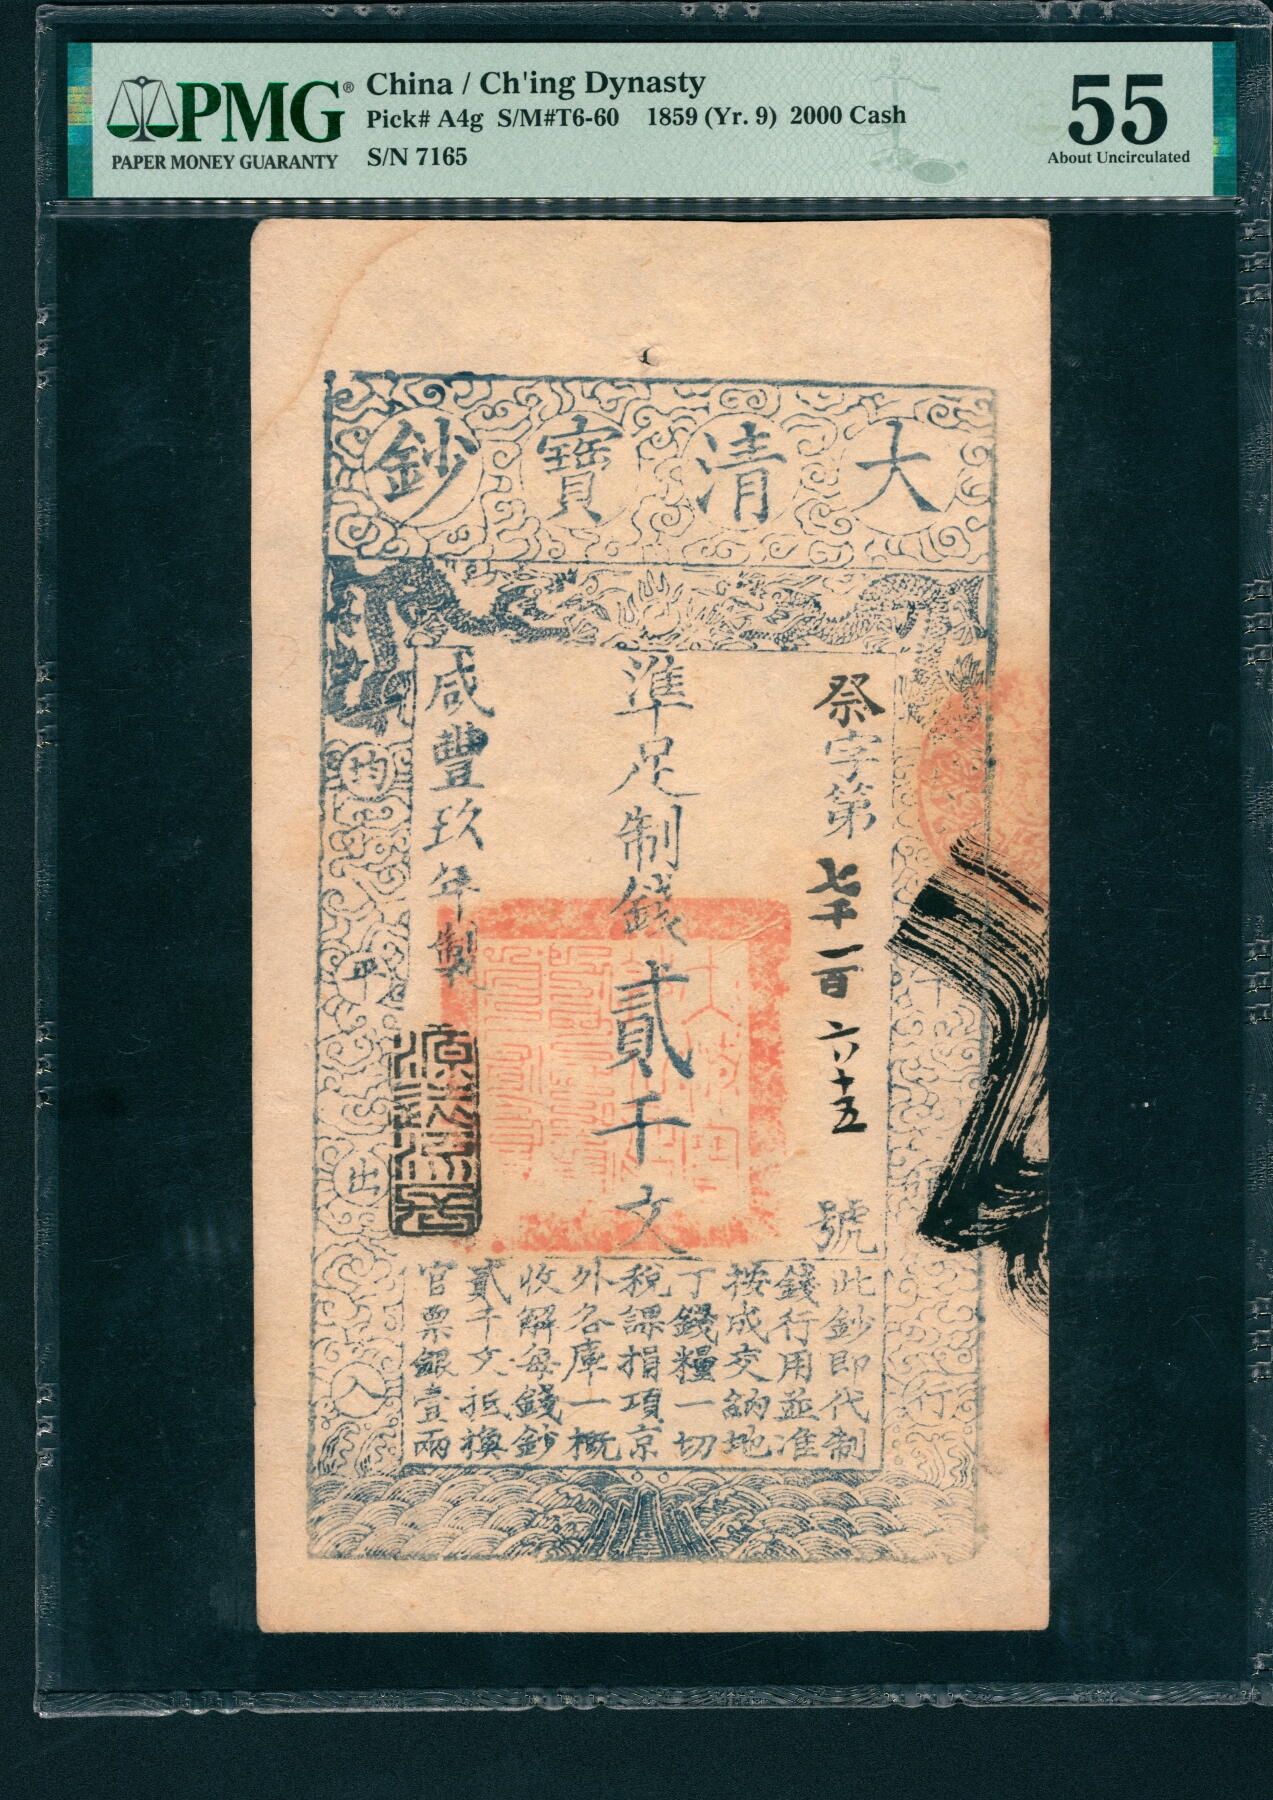 PMG®
PAPER MONEY GUARANTY
China / Ch'ing Dynasty
Pick# A4g S/M#T6-60 1859 (Yr. 9) 2000 Cash
S/N 7165
55
About Uncirculated
大清寶鈔
祭字第七千一百六十五號
準足制錢貳千文
咸豐玖年製
均平出入
行
此鈔即代制
錢行用並准
按成交納地
丁錢糧一切
稅課捐項京
外各庫一概
收解每錢鈔
貳千文抵換
官票銀壹兩